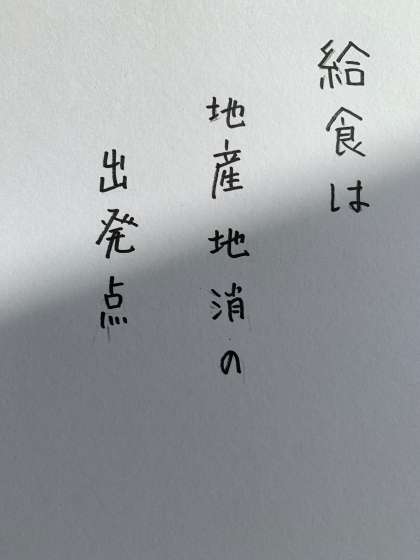 給食は
地産地消の
出発点